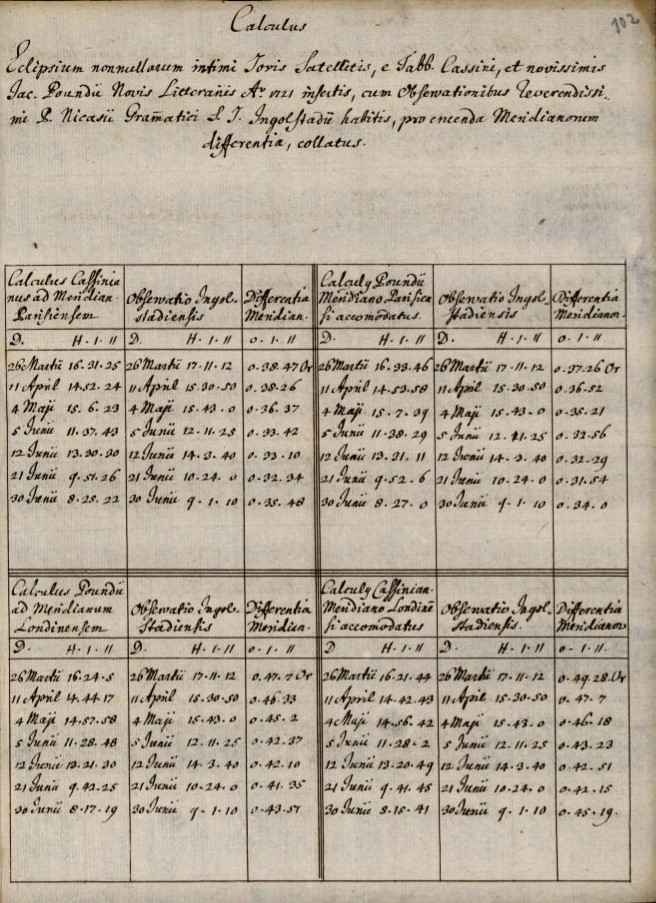 102
Calculus
Eclipsium nonnullarum intimi Jovis Satellitis, e Tabb. Cassini, et novissimis
Jac. Poundii Novis Litterariis Aº. 1721 insertis, cum Observationibus Reverendissi-
mi P. Nicasii Gram̄atici S. J. Ingolstadii habitis, pro eruenda Meridianorum
differentia, collatus.
Calculus Cassinia
nus ad Meridian.
Parisiensem
Observatio Ingol-
stadiensis
Differentia
Meridian.
D. H. I. II
D. H. I. II
0. I. II
26 Martii 16. 31. 25 26 Martii 17. 11. 12 0. 38. 47 Or
11 April 14. 52. 24 11 April 15. 30. 50 0. 38. 26
4 Maji 15. 6. 23 4 Maji 15. 43. 0 0. 36. 37
5 Junii 11. 37. 43 5 Junii 12. 11. 25 0. 33. 42
12 Junii 13. 30. 30 12 Junii 14. 3. 40 0. 33. 10
21 Junii 9. 51. 26 21 Junii 10. 24. 0 0. 32. 34
30 Junii 8. 25. 22 30 Junii 9. 1. 10 0. 35. 48
Calculq Poundii
Meridiano Parisien
si accomodatus.
Observatio Ingol-
stadiensis.
Differentia
Meridianor.
D. H. I. II
D. H. I. II
0. I. II
26 Martii 16. 33. 46 26 Martii 17. 11. 12 0. 37. 26 Or
11 April 14. 53. 58 11 April 15. 30. 50 0. 36. 52
4 Maji 15. 7. 39 4 Maji 15. 43. 0 0. 35. 21
5 Junii 11. 38. 29 5 Junii 12. 11. 25 0. 32. 56
12 Junii 13. 31. 11 12 Junii 14. 3. 40 0. 32. 29
21 Junii 9. 52. 6 21 Junii 10. 24. 0 0. 31. 54
30 Junii 8. 27. 0 30 Junii 9. 1. 10 0. 34. 0
Calculus Poundii
ad Meridianum
Londinensem
Observatio Ingol-
stadiensis
Differentia
Meridian.
D. H. I. II
D. H. I. II
0. I. II
26 Martii 16. 24. 5 26 Martii 17. 11. 12 0. 47. 7 Or
11 April 14. 44. 17 11 April 15. 30. 50 0. 46. 33
4 Maji 14. 57. 58 4 Maji 15. 43. 0 0. 45. 2
5 Junii 11. 28. 48 5 Junii 12. 11. 25 0. 42. 37
12 Junii 13. 21. 30 12 Junii 14. 3. 40 0. 42. 10
21 Junii 9. 42. 25 21 Junii 10. 24. 0 0. 41. 35
30 Junii 8. 17. 19 30 Junii 9. 1. 10 0. 43. 51
Calculq Cassinian.
Meridiano Londinē
si accomodatus
Observatio Ingol-
stadiensis.
Differentia
Meridianor
D. H. I. II
D. H. I. II
0. I. II
26 Martii 16. 21. 44 26 Martii 17. 11. 12 0. 49. 28. Or
11 April 14. 42. 43 11 April 15. 30. 50 0. 47. 7
4 Maji 14. 56. 42 4 Maji 15. 43. 0 0. 46. 18
5 Junii 11. 28. 2 5 Junii 12. 11. 25 0. 43. 23
12 Junii 13. 20. 49 12 Junii 14. 3. 40 0. 42. 51
21 Junii 9. 41. 45 21 Junii 10. 24. 0 0. 42. 15
30 Junii 8. 15. 41 30 Junii 9. 1. 10 0. 45. 19.